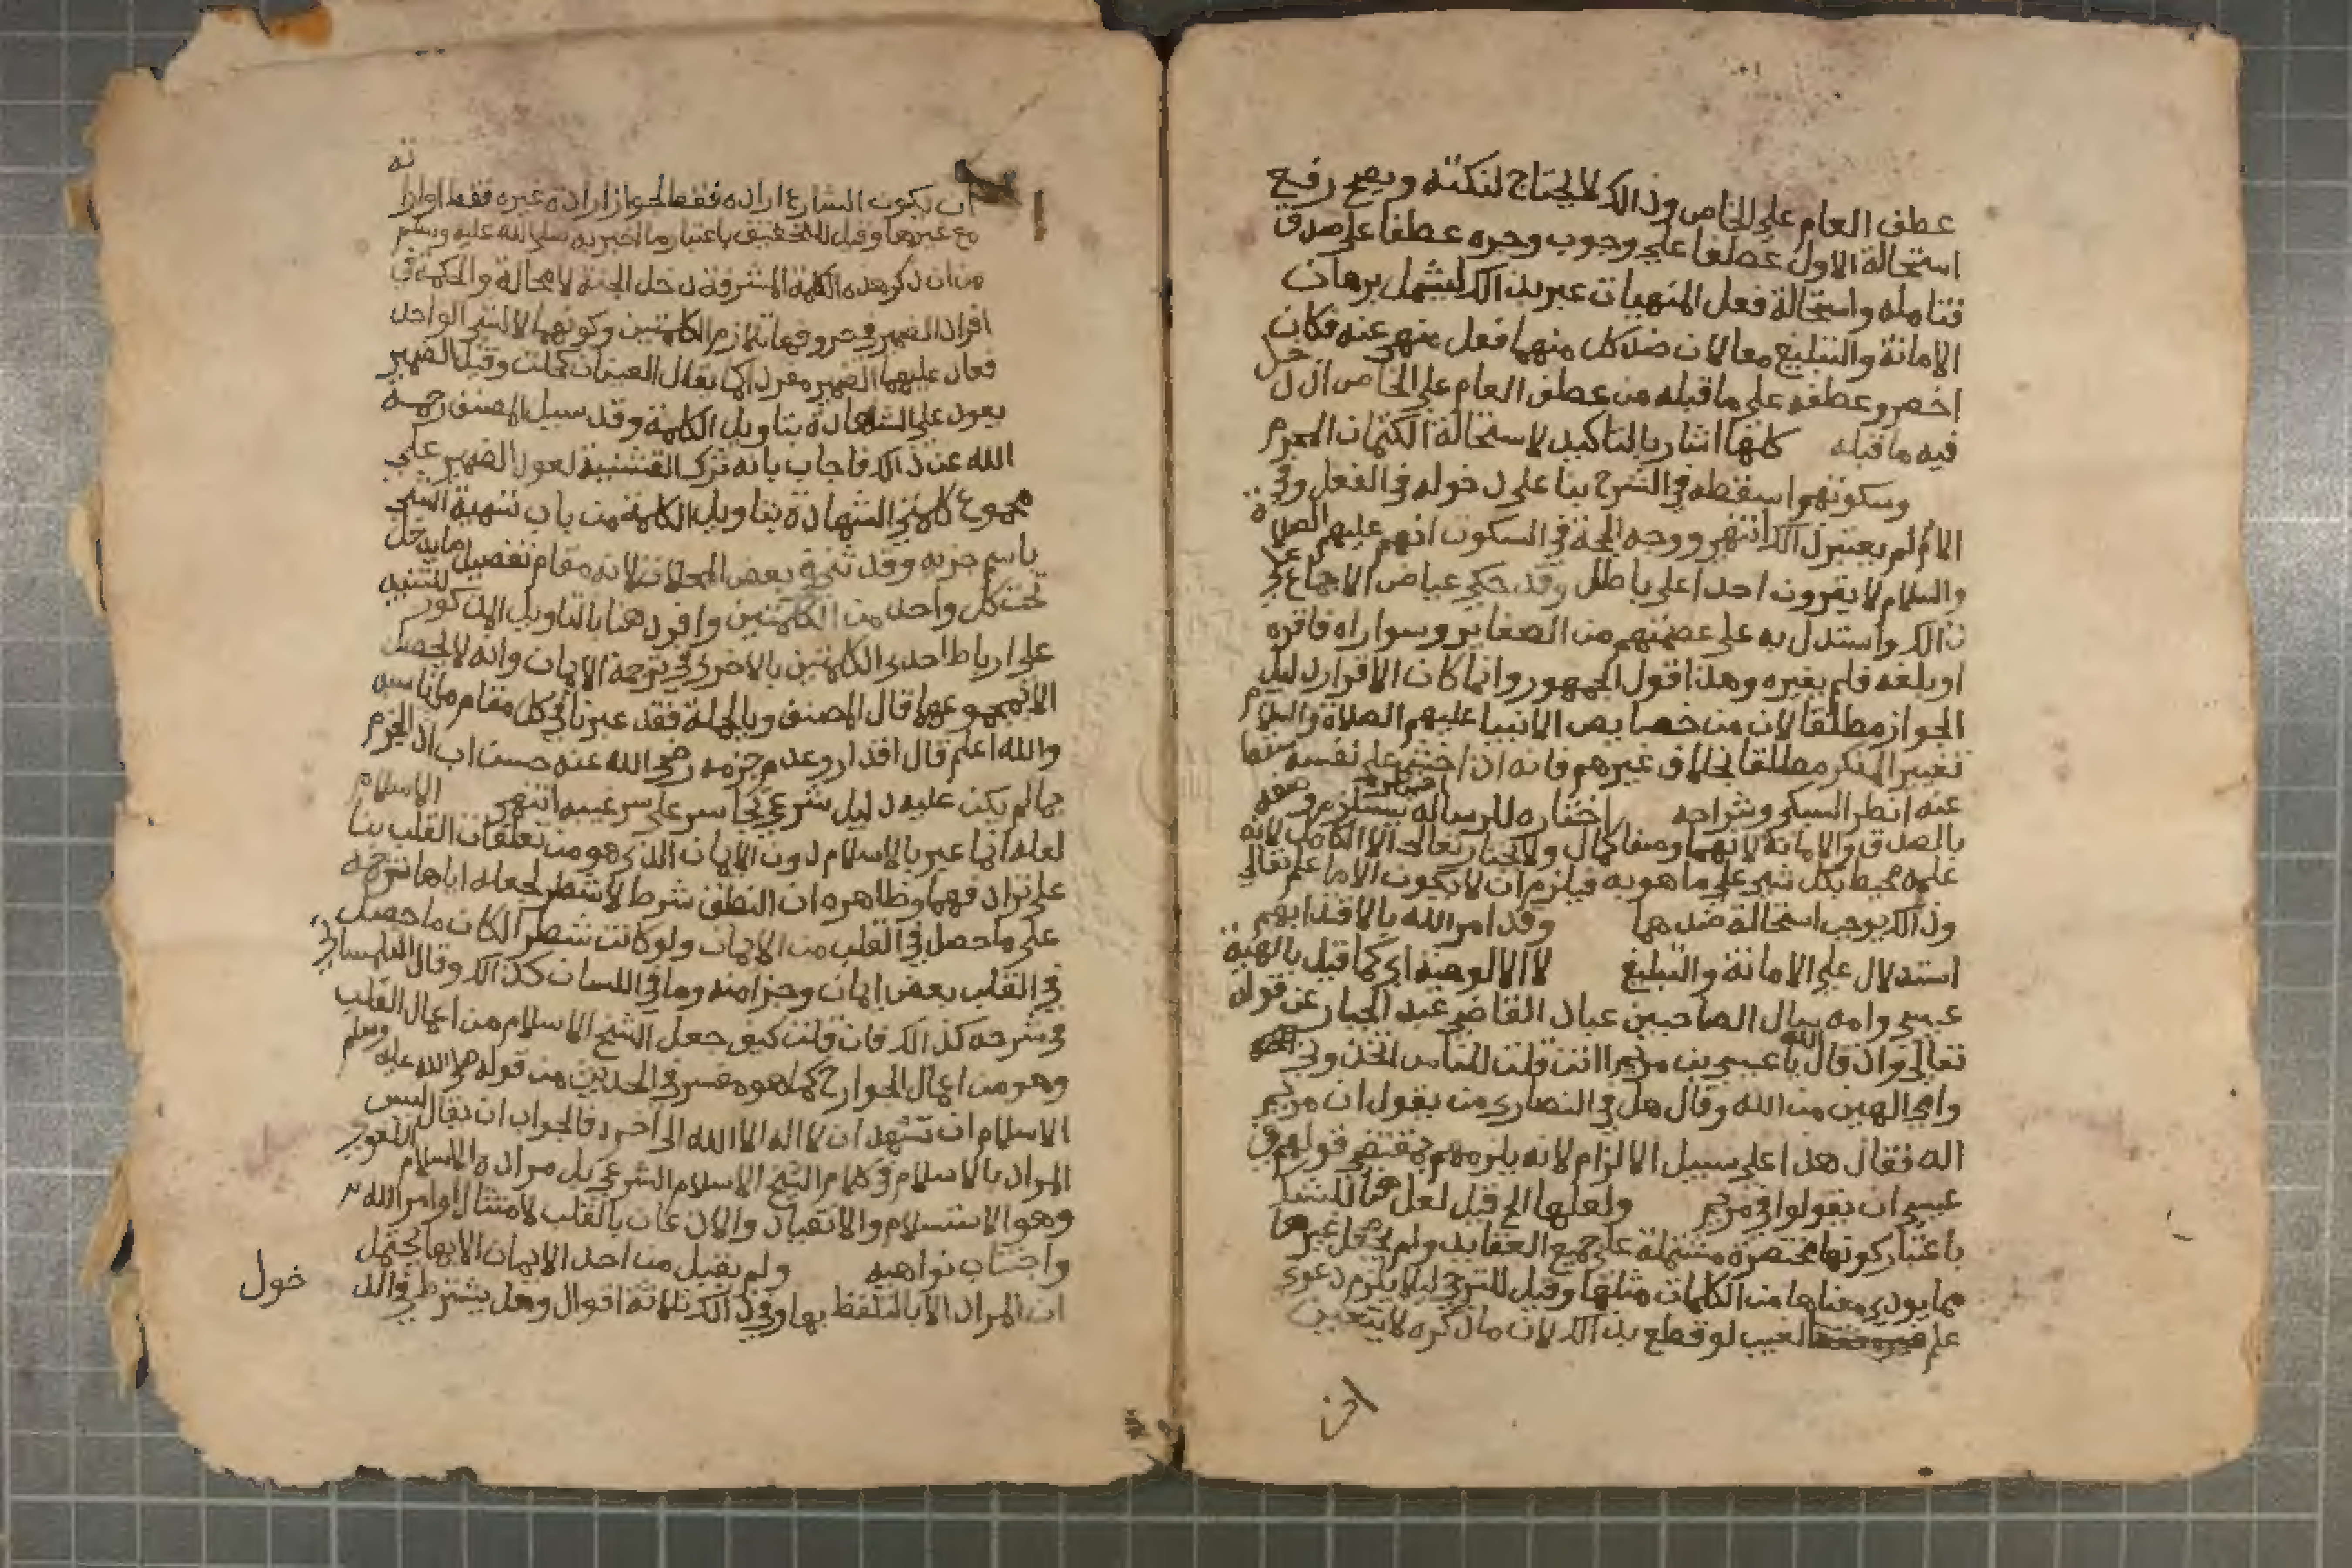 عطف العام على الخاص وذالك لا يحتاج لنكتة ويصح رفع
استحالة الاول عطفا على وجوب وجره عطفا على صدق
فتامله واستحالة فعل المنهيات عبر بذالك ليشمل برهان
الامانة والتبليغ معا لان ضد كل منهما فعل منهي عنه فكان
اخصر وعطفه على ما قبله من عطف العام على الخاص اذ دخل
فيه ما قبله كلها اشار بالتاكيد لاستحالة الكتمان المحرم
وسكوتهم واسقطه في الشرح بنا على دخوله في الفعل وفي
الام لم يعتبر ذالك انتهى ووجه الحجة في السكوت انهم عليهم الصلاة
والسلام لا يقرون احدا على باطل وقد حكى عياض الاجماع على
ذالك واستدل به على عصمتهم من الصغاير وسوا راه فاقره
او بلغه فلم يغيره وهذا قول الجمهور وانما كان الاقرار دليل
الجواز مطلقا لان من خصايص الانبيا عليهم الصلاة والسلام
تغيير المنكر مطلقا بخلاف غيرهم فانه اذا خشي على نفسه سقط
عنه انظر السبكي وشراحه اختاره للرسالة يستلزم وصفه
بالصدق والامانة لانهما وصفا كمال ولا يختار تعالى الا الكامل لانه
علمه محيط بكل شي على ما هو به فيلزم ان لا يكون الا ما علم تعالى
وذالك يوجب استحالة ضدها وقد امر الله بالاقتدا بهم
استدلال على الامانة والتبليغ لا الالوهية اي كما قيل بالهية
عيسى وامه سال الصاحب بن عباد القاضي عبد الجبار عن قوله
تعالى واذ قال الله يا عيسى بن مريم اانت قلت للناس اتخذوني
وامي الهين من الله وقال هل في النصارى من يقول ان مريم
اله فقال هذا على سبيل الالزام لانه يلزمهم بمقتضى قولهم في
عيسى ان يقولوا في مريم ولعلها الخ قيل لعل هنا للشك
باعتبار كونها مختصرة مشتملة على جميع العقايد ولم يجعل غيرها
مما يودي معناها من الكلمات مثلها وقيل للترجي ليلا يلزم دعوى
علم الغيب لو قطع بذالك لان ما ذكره لا يتعين
اذن
ان يكون الشارع اراده فقط لجواز ارادة غيره فقط او ارادته
مع غيرها وقيل للتحقيق باعتبار ما اخبر به صلى الله عليه وسلم
من ان ذكر هذه الكلمة المشرفة دخل الجنة لا محالة والحكمة في
افراد الضمير في حروفها تلازم الكلمتين وكونهما كالشي الواحد
فعاد عليهما الضمير مفردا كما يقال العينان كحلت وقيل الضمير
يعود على الشهادة بتاويل الكلمة وقد سيل المصنف رحمه
الله عن ذالك فاجاب بانه ترك التثنية لعود الضمير على
مجموع كلمتي الشهادة بتاويل الكلمة من باب تسمية الشي
باسم جزءه وقد ثني في بعض المحلات لانه مقام تفصيل ما يدخل
تحت كل واحد من الكلمتين وافرد هنا بالتاويل المذكور للتنبيه
على ارتباط احدى الكلمتين بالاخرى في ترجمة الايمان وانه لا يحصل
الا بمجموعهما قال المصنف وبالجملة فقد عبرنا في كل مقام ما يناسبه
والله اعلم قال اقدار وعدم جزمه رضي الله عنه حسن اب اذ الجزم
بما لم يكن عليه دليل شرعي تجاسر على سر غيبه انتهى الاسلام
لعله انما عبر بالاسلام دون الايمان الذي هو من تعلقات القلب بنا
على ترادفهما وظاهره ان النطق شرط لا شطر لجعله اياها ترجمة
على ما حصل في القلب من الايمان ولو كانت شطرا لكان ما حصل
في القلب بعض ايمان وجزا منه وما في اللسان كذالك وقال التلمساني
في شرحه كذالك فان قلت كيف جعل الشيخ الاسلام من اعمال القلب
وهو من اعمال الجوارح كما هو مفسر في الحديث من قوله صلى الله عليه وسلم
الاسلام ان تشهد ان لا اله الا الله الى اخره فالجواب ان يقال ليس
المراد بالاسلام في كلام الشيخ الاسلام الشرعي بل مراده الاسلام اللغوي
وهو الاستسلام والانقياد والاذعان بالقلب لامتثال اوامر الله
واجتناب نواهيه ولم يقبل من احد الايمان الا بها يحتمل
ان المراد الا بالتلفظ بها وفي ذالك ثلاثة اقوال وهل يشترط في الد
خول